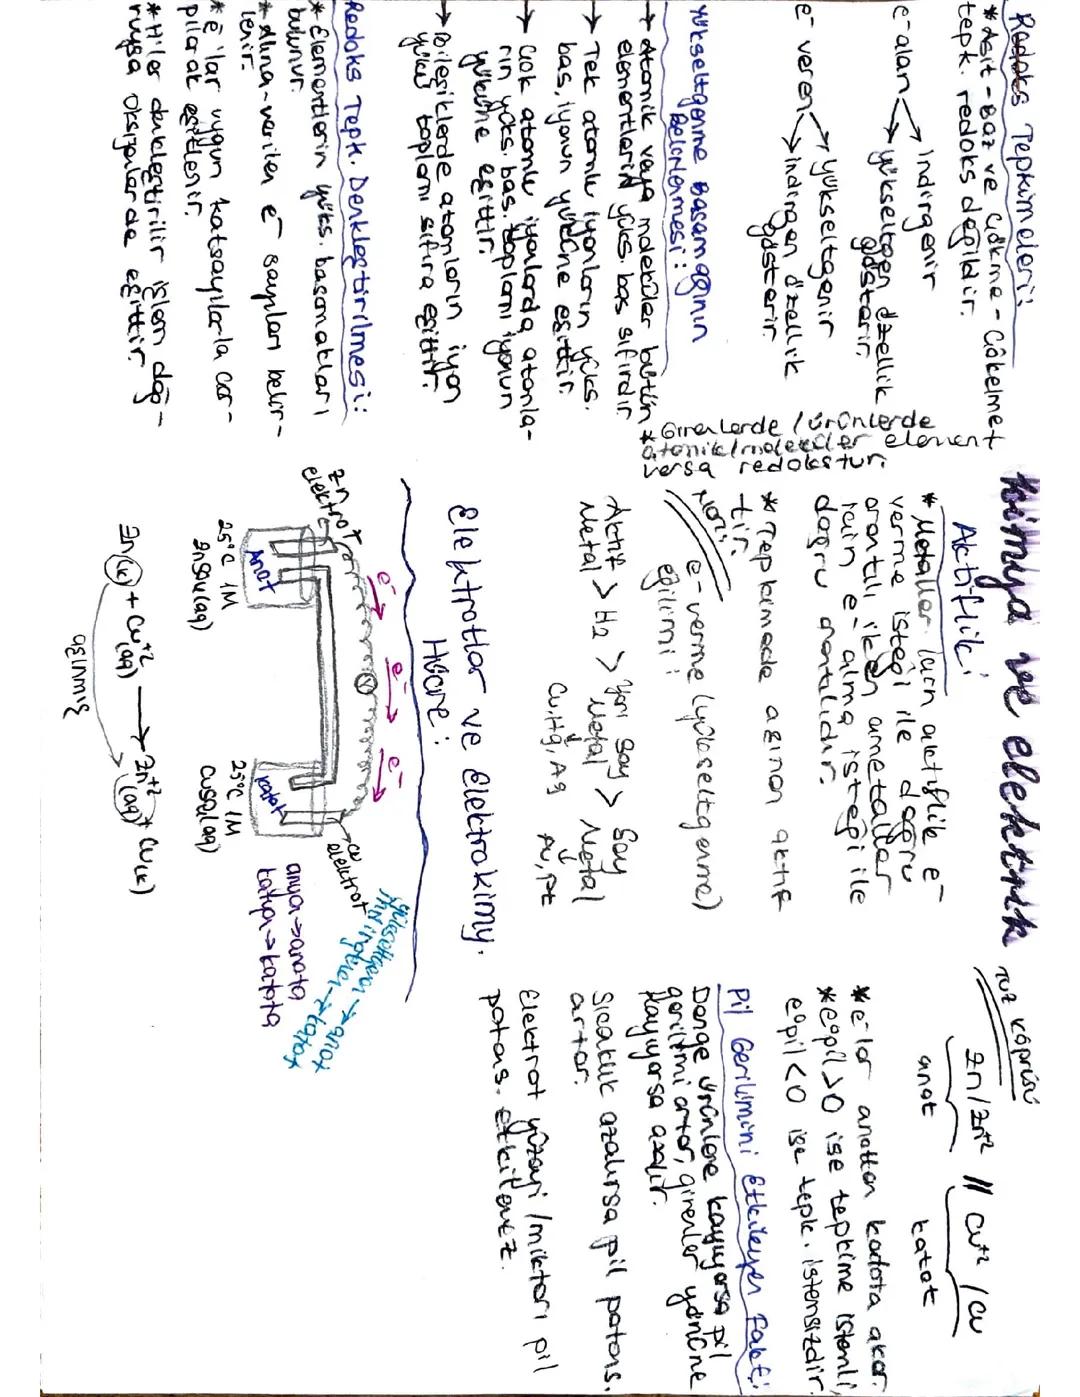 Kimya ve elektrik
Redoks Tepkimeleri:
* Asit-Baz ve Çökme-Çökelmet
tepk. redoks değildir.
e⁻ alan → indirgenir
→ yükseltgen özellik
gösterir.
e⁻ veren → yükseltgenir
→ indirgen özellik
gösterir.
* Girenlerde / ürünlerde
atomik/moleküler element
versa redokstur.
Yükseltgenme Basamağının
Belirlenmesi:
→ Atomik veya moleküler bütün
elementlerin yüks. bas sıfırdır
→ Tek atomlu iyonların yüks.
bas, iyonun yüküne eşittir.
→ Çok atomlu iyonlarda atomla-
rın yüks. bas. toplamı iyonun
yüküne eşittir.
→ Bileşiklerde atomların iyon
yükü toplamı sıfıra eşittir.
Redoks Tepk. Denkleştirilmesi:
* Elementlerin yüks. basamakları
bulunur.
* Alına-verilen e⁻ sayıları belir-
lenir.
* e⁻'lar uygun katsayılarla çar-
pılarak eşitlenir.
* H'ler denkleştirilir işlem doğ-
ruysa oksijenler de eşittir.
Aktiflik:
* Metallerların aktiflik e⁻
verme isteği ile doğru
orantılı iken ametaller
rain e⁻ alma isteği ile
doğru orantılıdır.
* Tepkimede aşınan aktif
tir.
Not:
e⁻ verme (yükseltgenme)
eğilimi:
Aktif Metal > H₂ > Yarı Soy Metal > Soy Metal
Cu, Hg, Ag
Au, Pt
Elektrotlar ve Elektrokimy.
Hücre:
e⁻ e⁻ e⁻
Zn
elektrot
V
Cu
elektrot
Anot
Katot
25°C 1M
ZnSO₄(aq)
25°C 1M
CuSO₄(aq)
Zn(k) + Cu⁺²(aq) → Zn⁺²(aq) + Cu(k)
aşınmış
yükseltgen → anot
indirgen → katot
anyon → anota
katyon → katota
Tuz köprüsü
Zn/Zn⁺² // Cu⁺²/Cu
anot
katot
* e⁻lar anottan katota akar.
* e°pil > 0 ise tepkime istemli
e°pil < 0 ise tepk. istemsizdir.
Pil Gerilimini Etkileyen Fakt:
Denge ürünlere kayıyorsa pil
gerilimi artar, girenler yönüne
kayıyorsa azalır.
Sıcaklık azalırsa pil potans.
artar.
Elektrot yüzeyi/miktarı pil
potans. etkilemez.